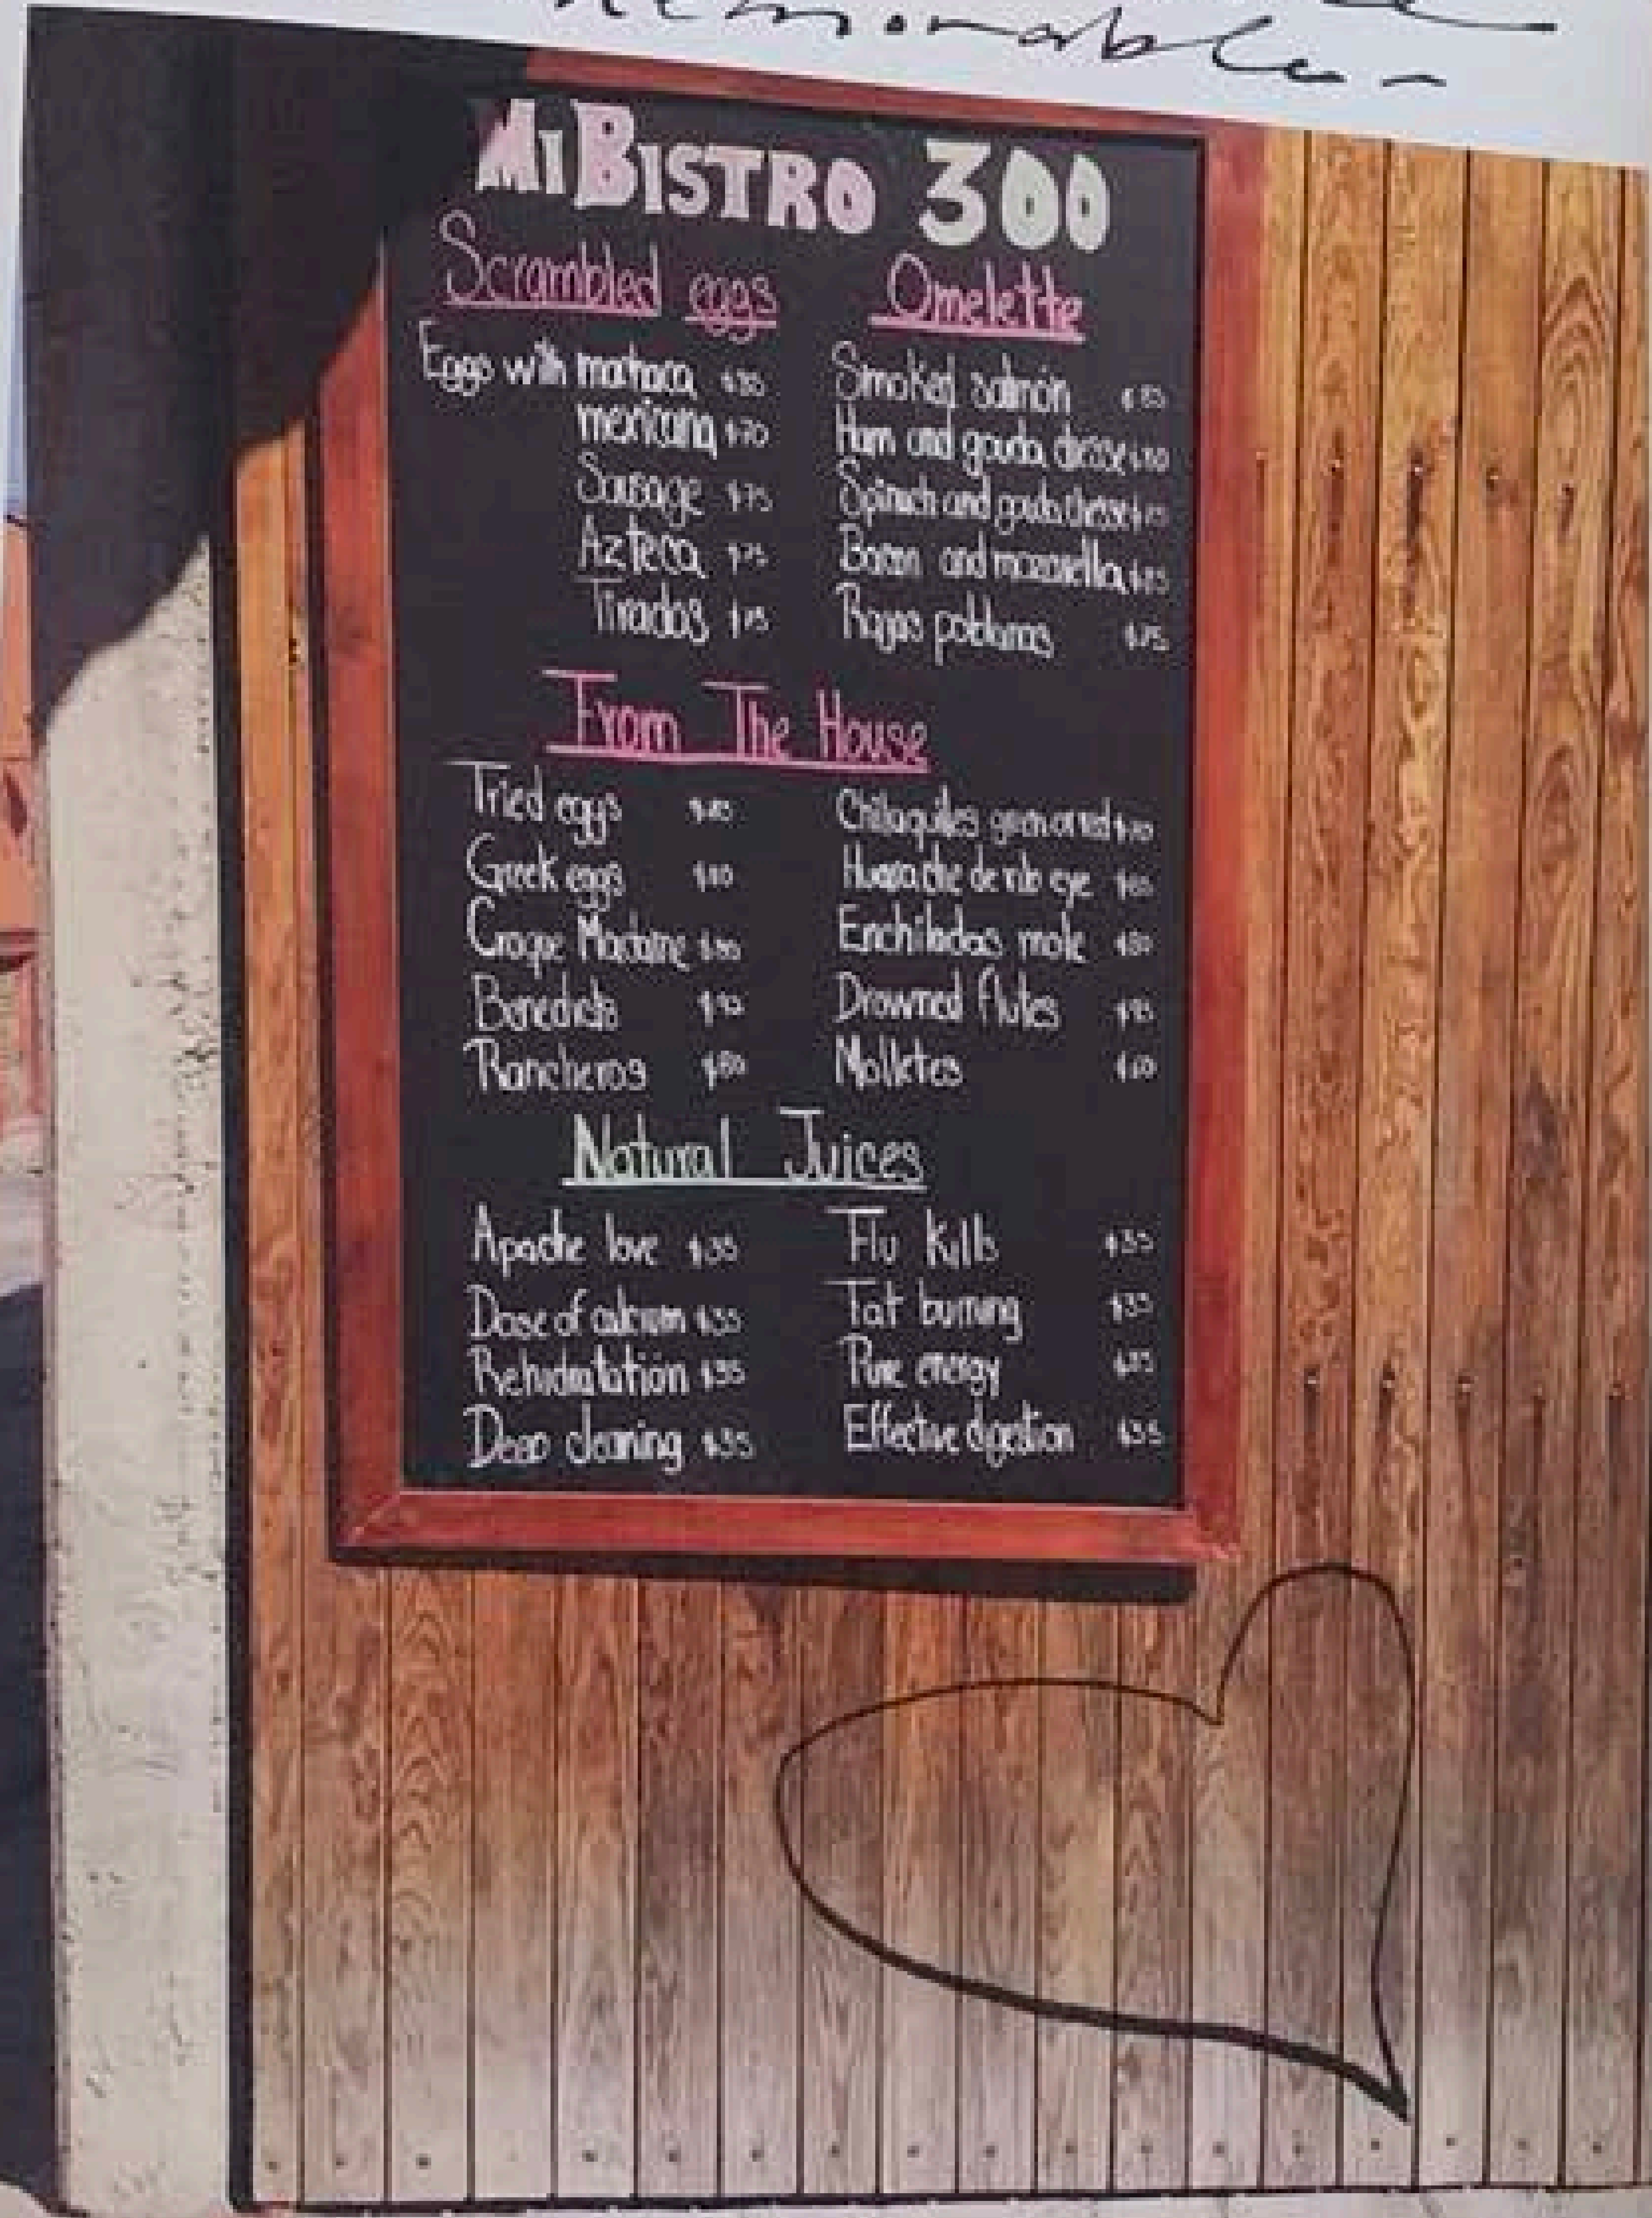 memorable-
MiBISTRO 300
Scrambled eggs
Eggs with machaca $80
mexicana $70
Sausage $75
Azteca $75
Tirados $75
Omelette
Smoked salmón $85
Ham and gouda chesse $80
Spinach and gouda chesse
Bacon and mozarella $85
Rajas poblanas $75
From The House
Fried eggs
Greek eggs $80
Croque Madame
Benedicts
Rancheros $80
Chilaquiles green or red $70
Huarache de rib eye
Enchiladas mole $80
Drowned flutes
Molletes $60
Natural Juices
Apache love $35
Dose of calcium $35
Rehidratatión $35
Deep cleaning $35
Flu kills $35
Fat burning $35
Pure energy $35
Effective digestion $35